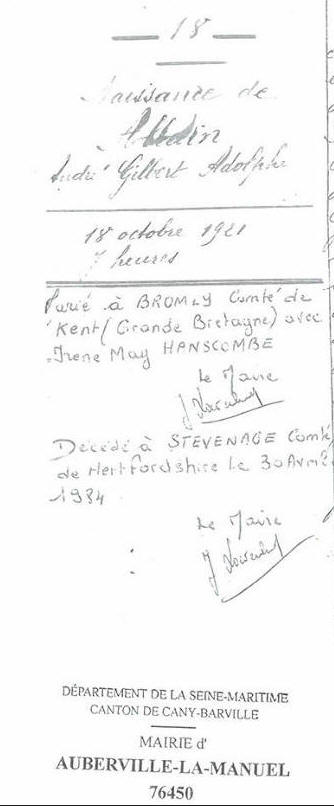 — 18 —
Naissance de
André Gilbert Adolphe
18 octobre 1921
7 heures
Marié à BROMLY Comté de
Kent (Grande Bretagne) avec
Irene May HANSCOMBE
Le Maire
Décédé à STEVENAGE Comté
de Hertfordshire le 30 Avril
1984
Le Maire
DÉPARTEMENT DE LA SEINE-MARITIME
CANTON DE CANY-BARVILLE
MAIRIE d'
AUBERVILLE-LA-MANUEL
76450